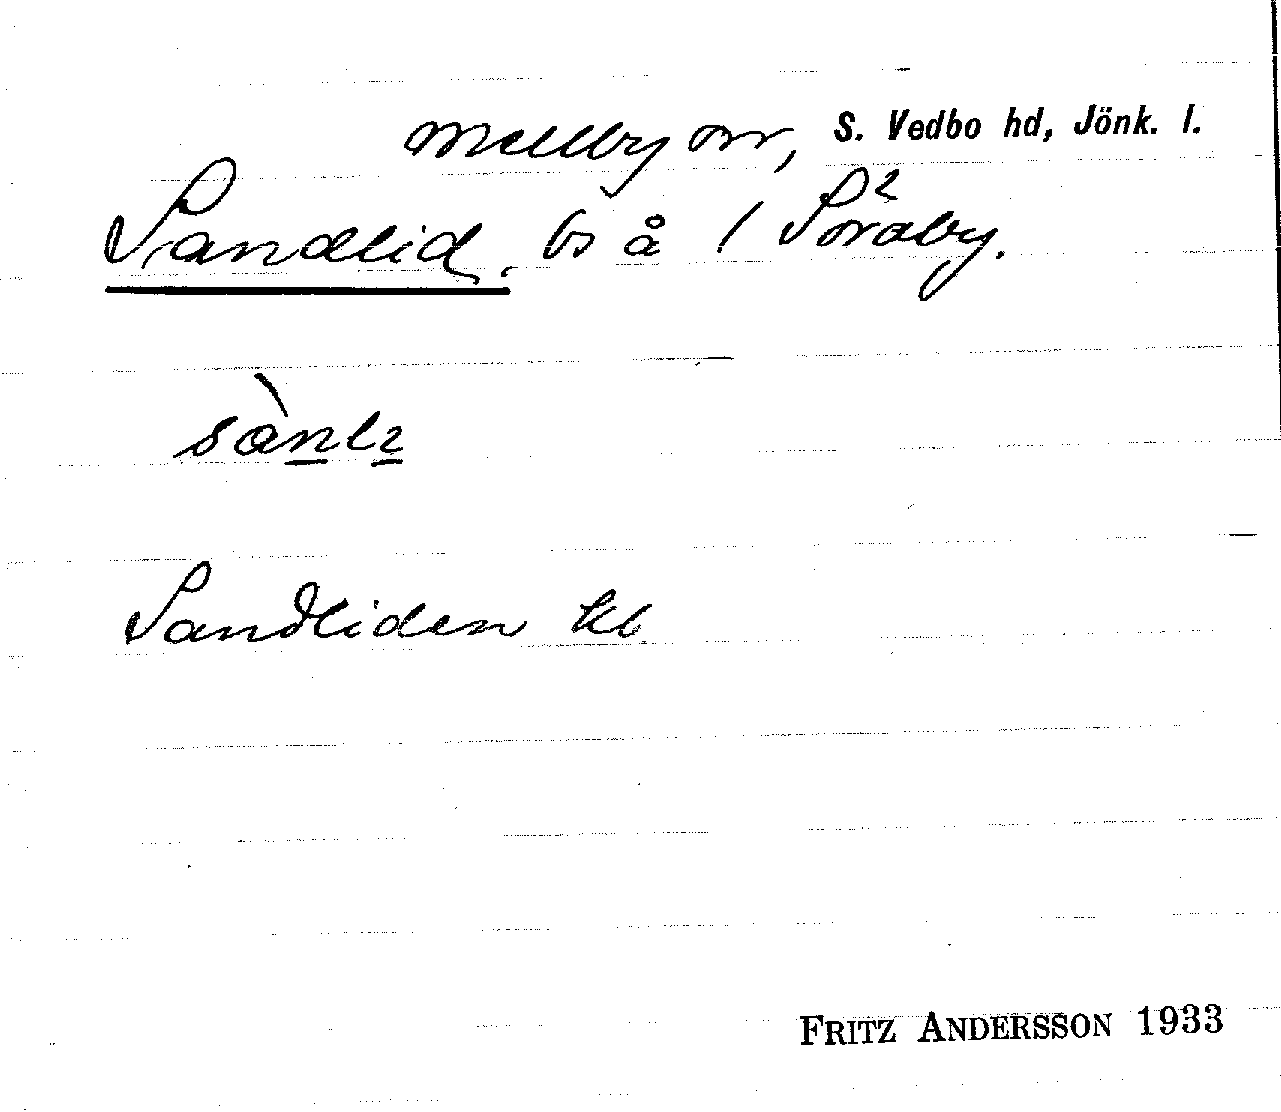 Mellby sn, S. Vedbo hd, Jönk. l.
Sandlid, bs å 1 Söraby.
sànlı
Sandliden kb
FRITZ ANDERSSON 1933